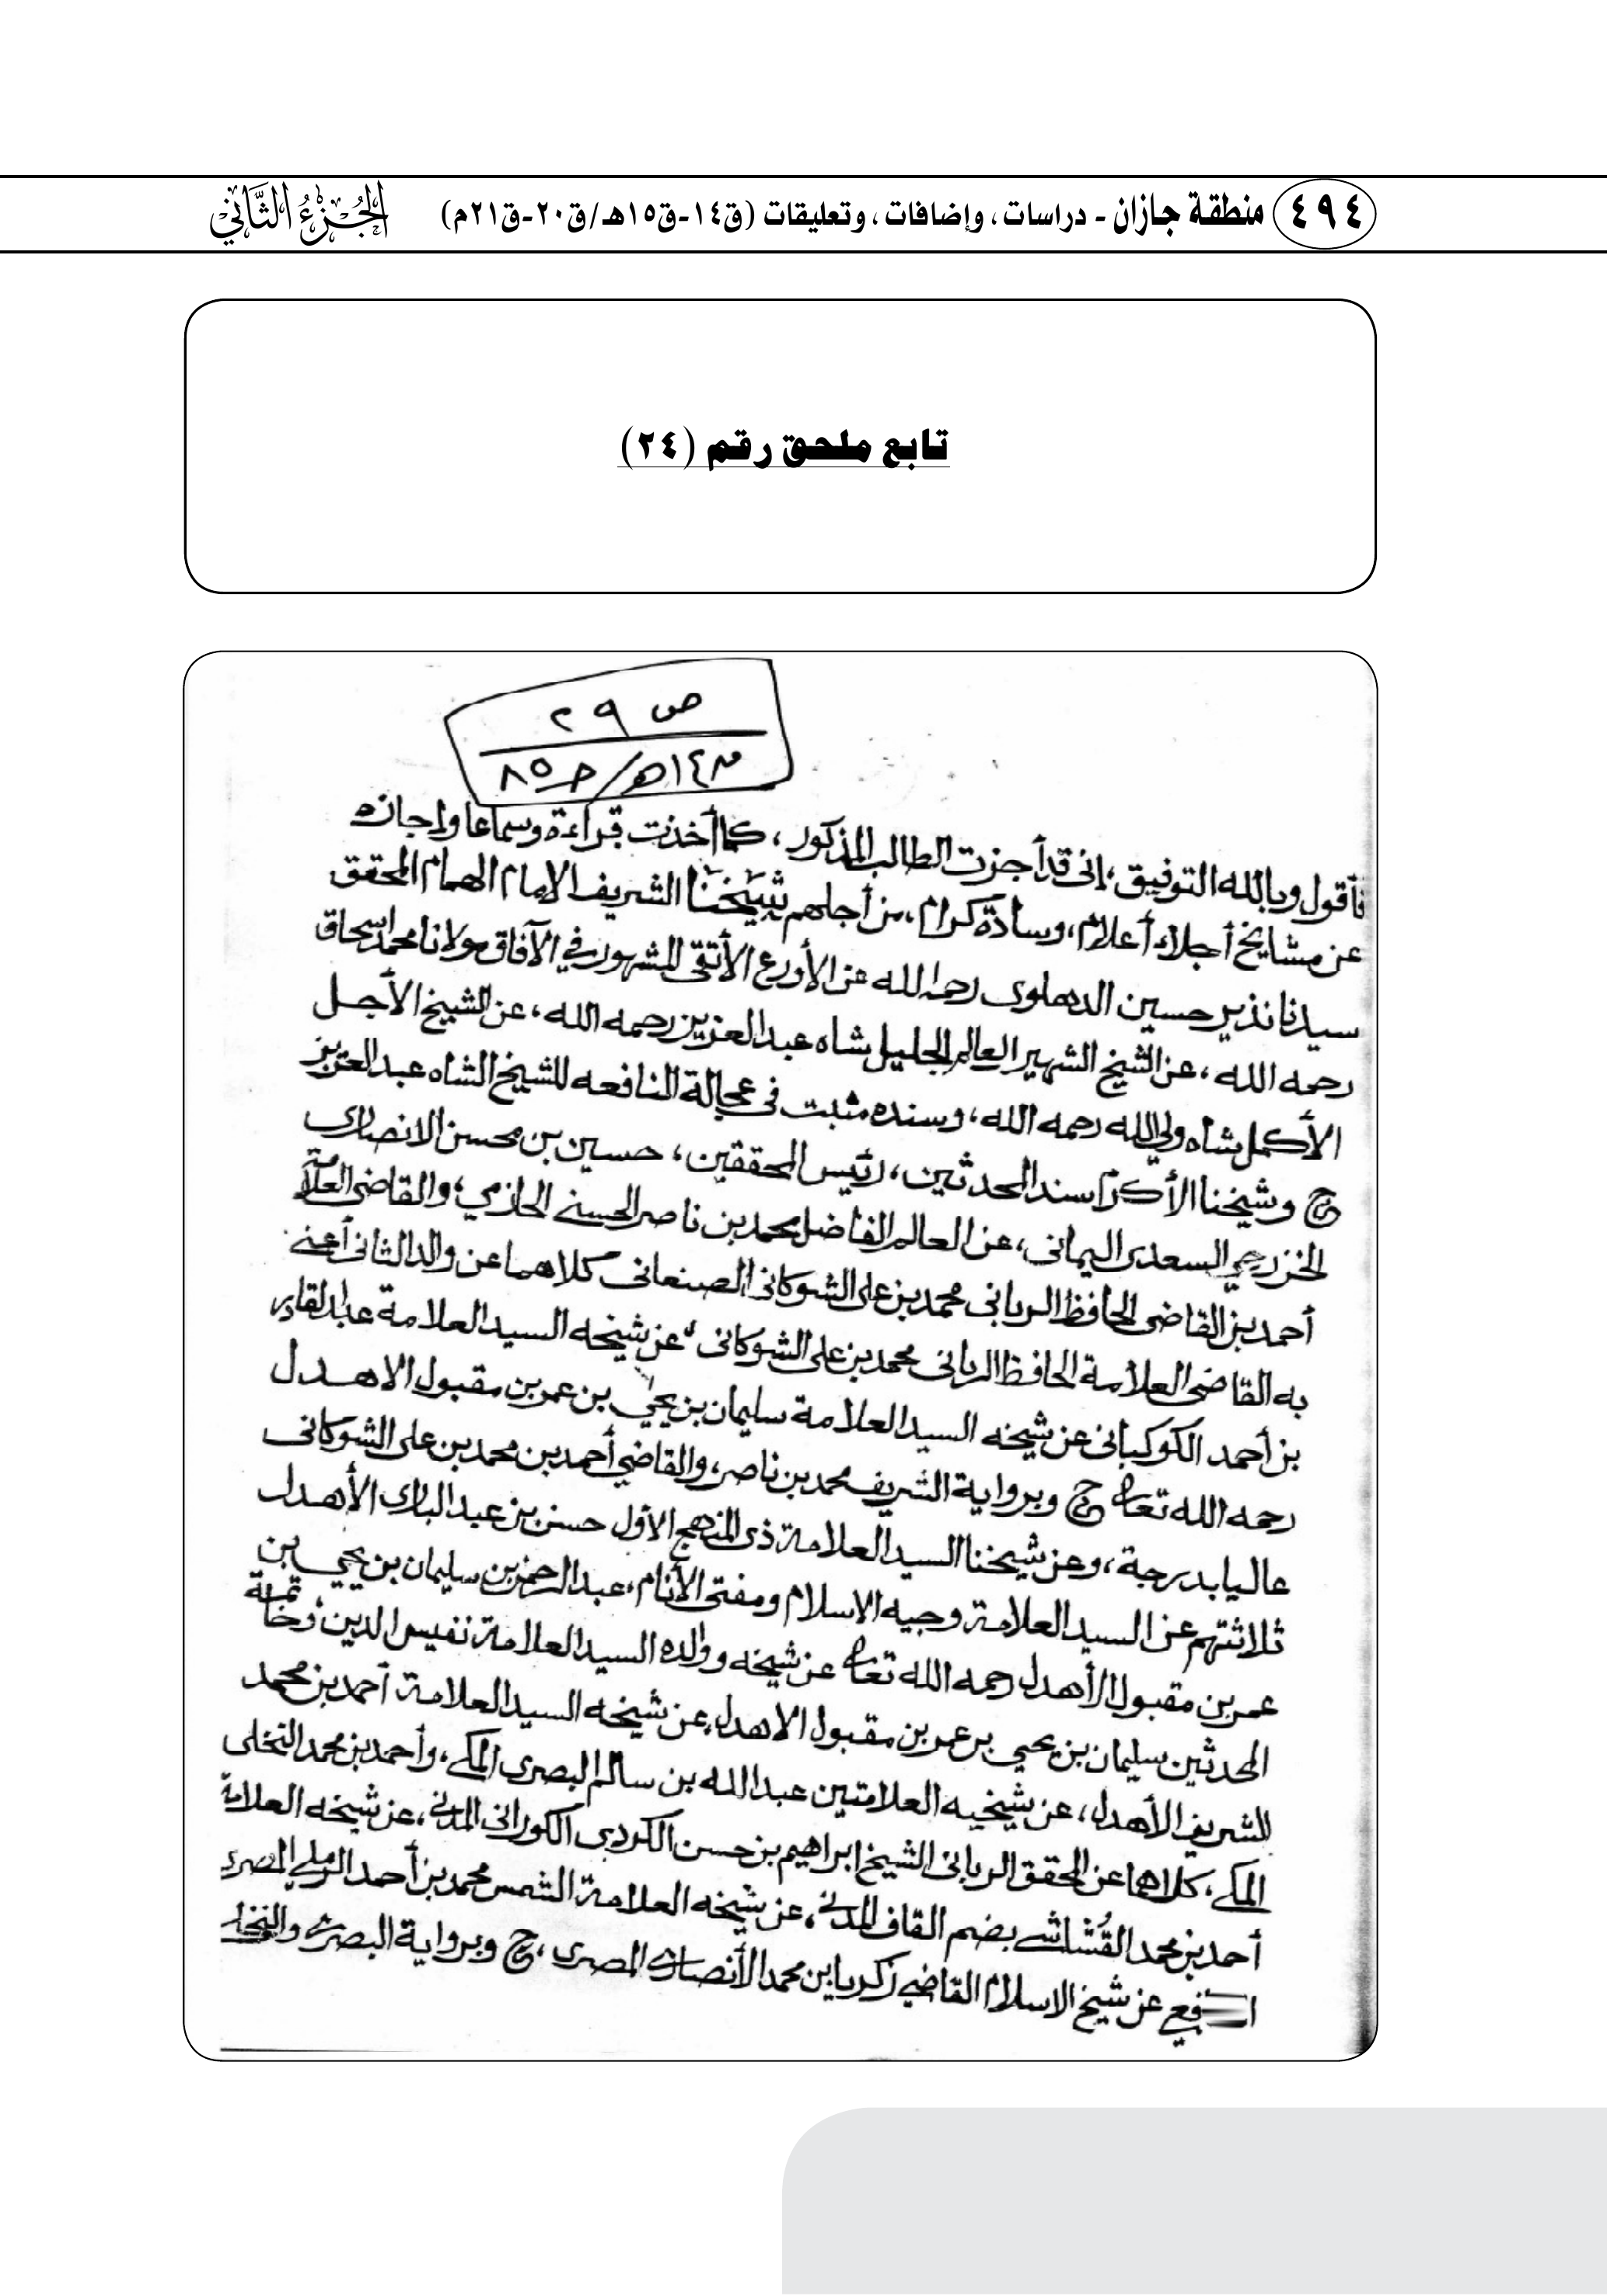 ٤٩٤ منطقة جازان - دراسات، وإضافات، وتعليقات (ق١٤-ق١٥هـ/ق٢٠-ق٢١م) الجزء الثاني
تابع ملحق رقم (٢٤)
ص ٢٩
فأقول وبالله التوفيق، إنى قد أجزت الطالب المذكور، كما أخذت قراءة وسماعا وإجازه
عن مشايخ أجلاء أعلام، وسادة كرام، من أجلهم شيخنا الشريف الامام الهمام المحقق
سيدنا نذير حسين الدهلوى رحمه الله عن الأورع الأتقى المشهور في الآفاق مولانا محمد اسحاق
رحمه الله، عن الشيخ الشهير العالم الجليل شاه عبد العزيز رحمه الله، عن الشيخ الأجل
الأكمل شاه ولي الله رحمه الله، وسنده مثبت فى عجالة النافعه للشيخ الشاه عبد العزيز
ح وشيخنا الأكرم سند المحدثين، رئيس المحققين، حسين بن محسن الانصارى
الخزرجي السعدى اليمانى، عن العالم الفاضل محمد بن ناصر الحسنى الحازمي، والقاضى العلامة
أحمد بن القاضى الحافظ الربانى محمد بن على الشوكانى الصنعانى كلاهما عن والد الثانى أعنى
به القاضى العلامة الحافظ الربانى محمد بن على الشوكانى، عن شيخه السيد العلامة عبد القادر
بن أحمد الكوكبانى عن شيخه السيد العلامة سليمان بن يحيى بن عمر بن مقبول الاهدل
رحمه الله تعالى ح وبرواية الشريف محمد بن ناصر، والقاضي أحمد بن محمد بن على الشوكانى
عاليا بدرجة، وعن شيخنا السيد العلامة ذى المنهج الأول حسن بن عبد البارى الأهدل
ثلاثتهم عن السيد العلامة وجيه الاسلام ومفتى الأنام، عبد الرحمن بن سليمان بن يحيى بن
عمر بن مقبول الأهدل رحمه الله تعالى عن شيخه ووالده السيد العلامة نفيس الدين، وخاتمة
المحدثين سليمان بن يحيى بن عمر بن مقبول الاهدل، عن شيخه السيد العلامة أحمد بن محمد
الشريف الأهدل، عن شيخيه العلامتين عبد الله بن سالم البصرى المكى، وأحمد بن محمد النخلى
المكى، كلاهما عن المحقق الربانى الشيخ ابراهيم بن حسن الكردى الكورانى المدنى، عن شيخه العلامة
أحمد بن محمد القُشاشى بضم القاف المدنى، عن شيخه العلامة الشمس محمد بن أحمد الرملي المصرى
عن شيخ الاسلام القاضي زكريا بن محمد الأنصارى المصرى، ح وبرواية البصرى والنخلى